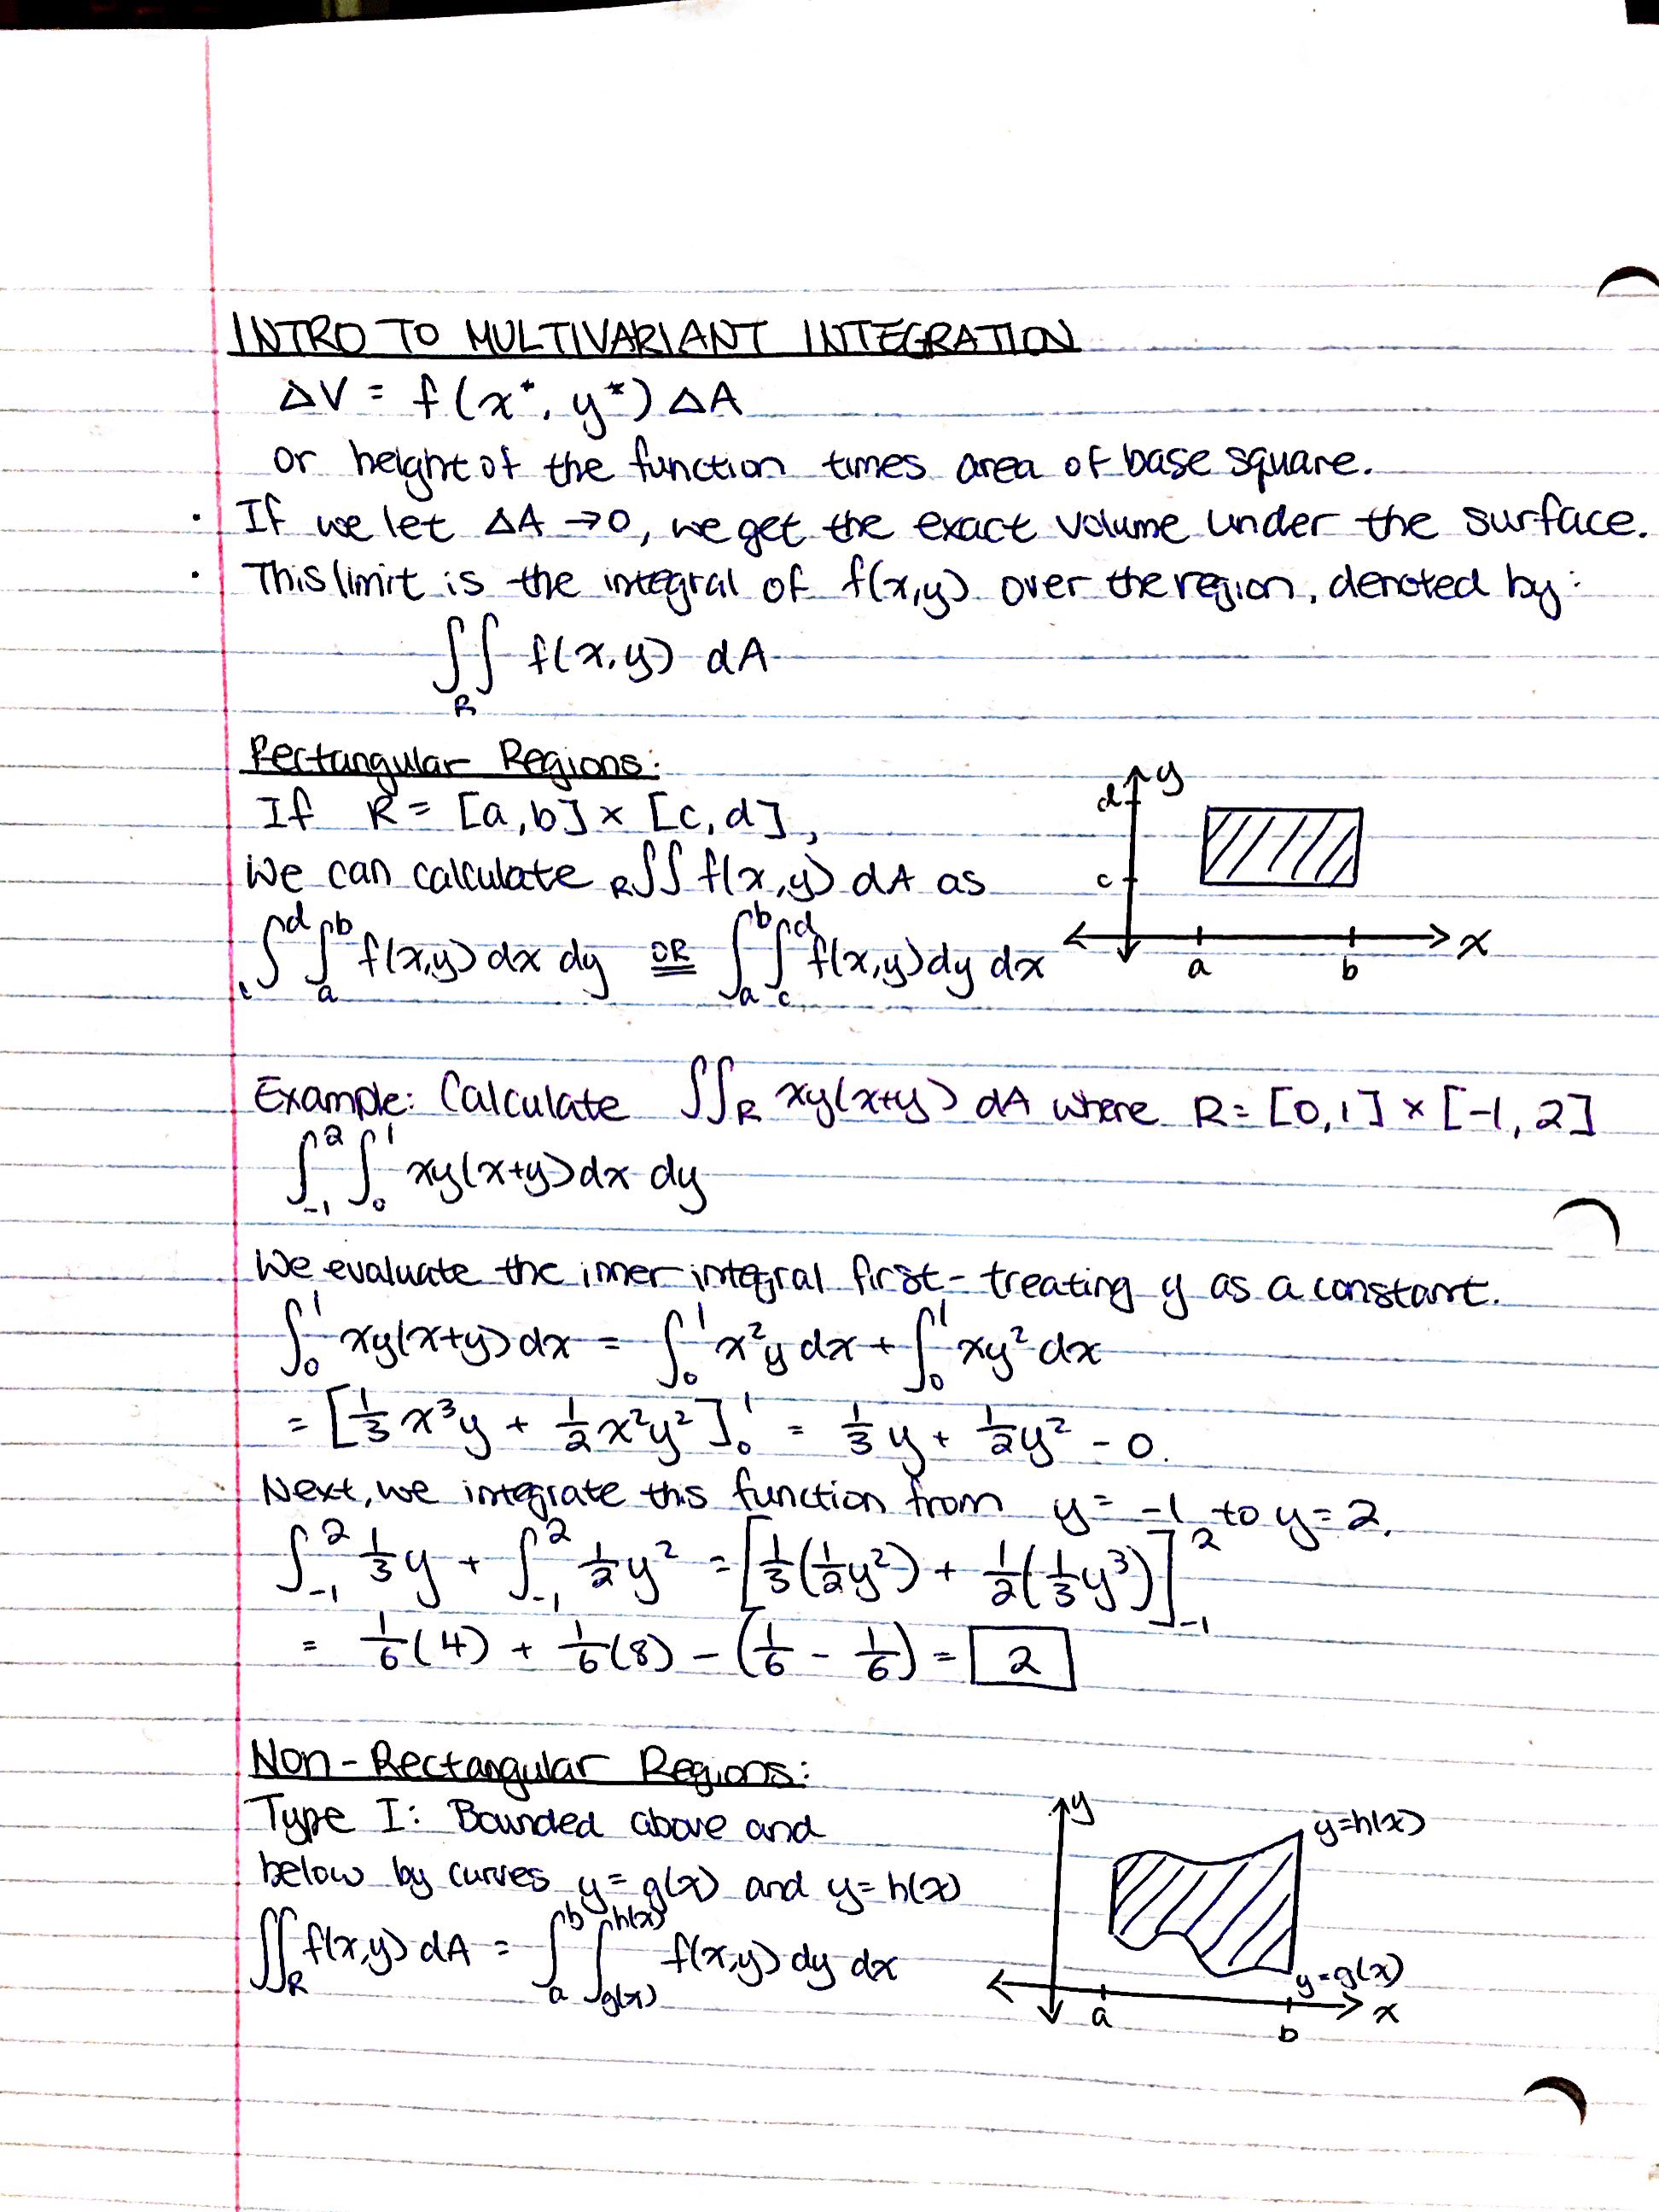 INTRO TO MULTIVARIANT INTEGRATION
ΔV = f(x*, y*) ΔA
or height of the function times area of base square.
· If we let ΔA → 0, we get the exact volume under the surface.
· This limit is the integral of f(x,y) over the region, denoted by:
∫∫_R f(x,y) dA
Rectangular Regions:
If R = [a,b] × [c,d],
we can calculate _R∫∫ f(x,y) dA as
∫_c^d ∫_a^b f(x,y) dx dy OR ∫_a^b ∫_c^d f(x,y) dy dx
y
d
c
a b x
Example: Calculate ∫∫_R xy(x+y) dA where R = [0,1] × [-1,2]
∫_{-1}^2 ∫_0^1 xy(x+y) dx dy
We evaluate the inner integral first - treating y as a constant.
∫_0^1 xy(x+y) dx = ∫_0^1 x²y dx + ∫_0^1 xy² dx
= [1/3 x³y + 1/2 x²y²]_0^1 = 1/3 y + 1/2 y² - 0.
Next, we integrate this function from y = -1 to y = 2.
∫_{-1}^2 1/3 y + ∫_{-1}^2 1/2 y² = [1/3(1/2 y²) + 1/2(1/3 y³)]_{-1}^2
= 1/6(4) + 1/6(8) - (1/6 - 1/6) = 2
Non-Rectangular Regions:
Type I: Bounded above and
below by curves y = g(x) and y = h(x)
∫∫_R f(x,y) dA = ∫_a^b ∫_{g(x)}^{h(x)} f(x,y) dy dx
y
y=h(x)
y=g(x)
a b x